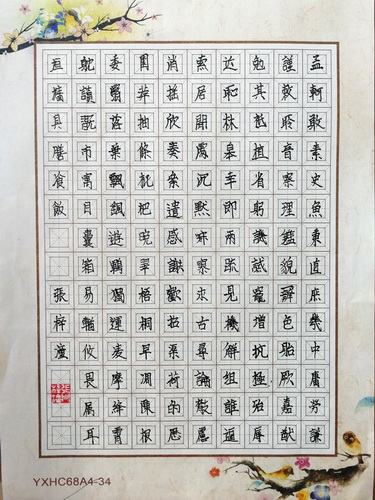 孟軻敦素史魚秉直庶幾中庸勞謙
謹敕聆音察理鑑貌辯色貽厥嘉猷
勉其祗植省躬譏誡寵增抗極殆辱
近恥林皋幸即兩疏見機解組誰逼
索居閒處沉默寂寥求古尋論散慮
消搖欣奏累遣感謝歡招渠荷的歷
園莽抽條枇杷晚翠梧桐早凋陳根
委翳落葉飄颻遊鵾獨運凌摩絳霄
耽讀翫市寓目囊箱易輶攸畏屬耳
垣墻具膳飡飯
張梓
YXHC68A4-34